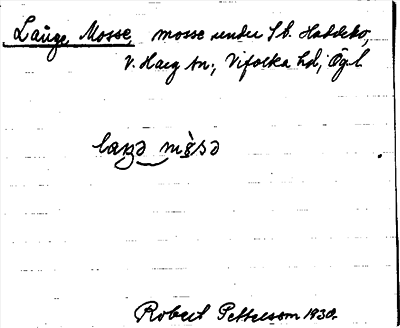 Långe Mosse, mosse under St. Haddebo,
V. Harg sn; Vifolka hd; Ögl.
laŋə mɵ̀sə
Robert Pettersson 1930.